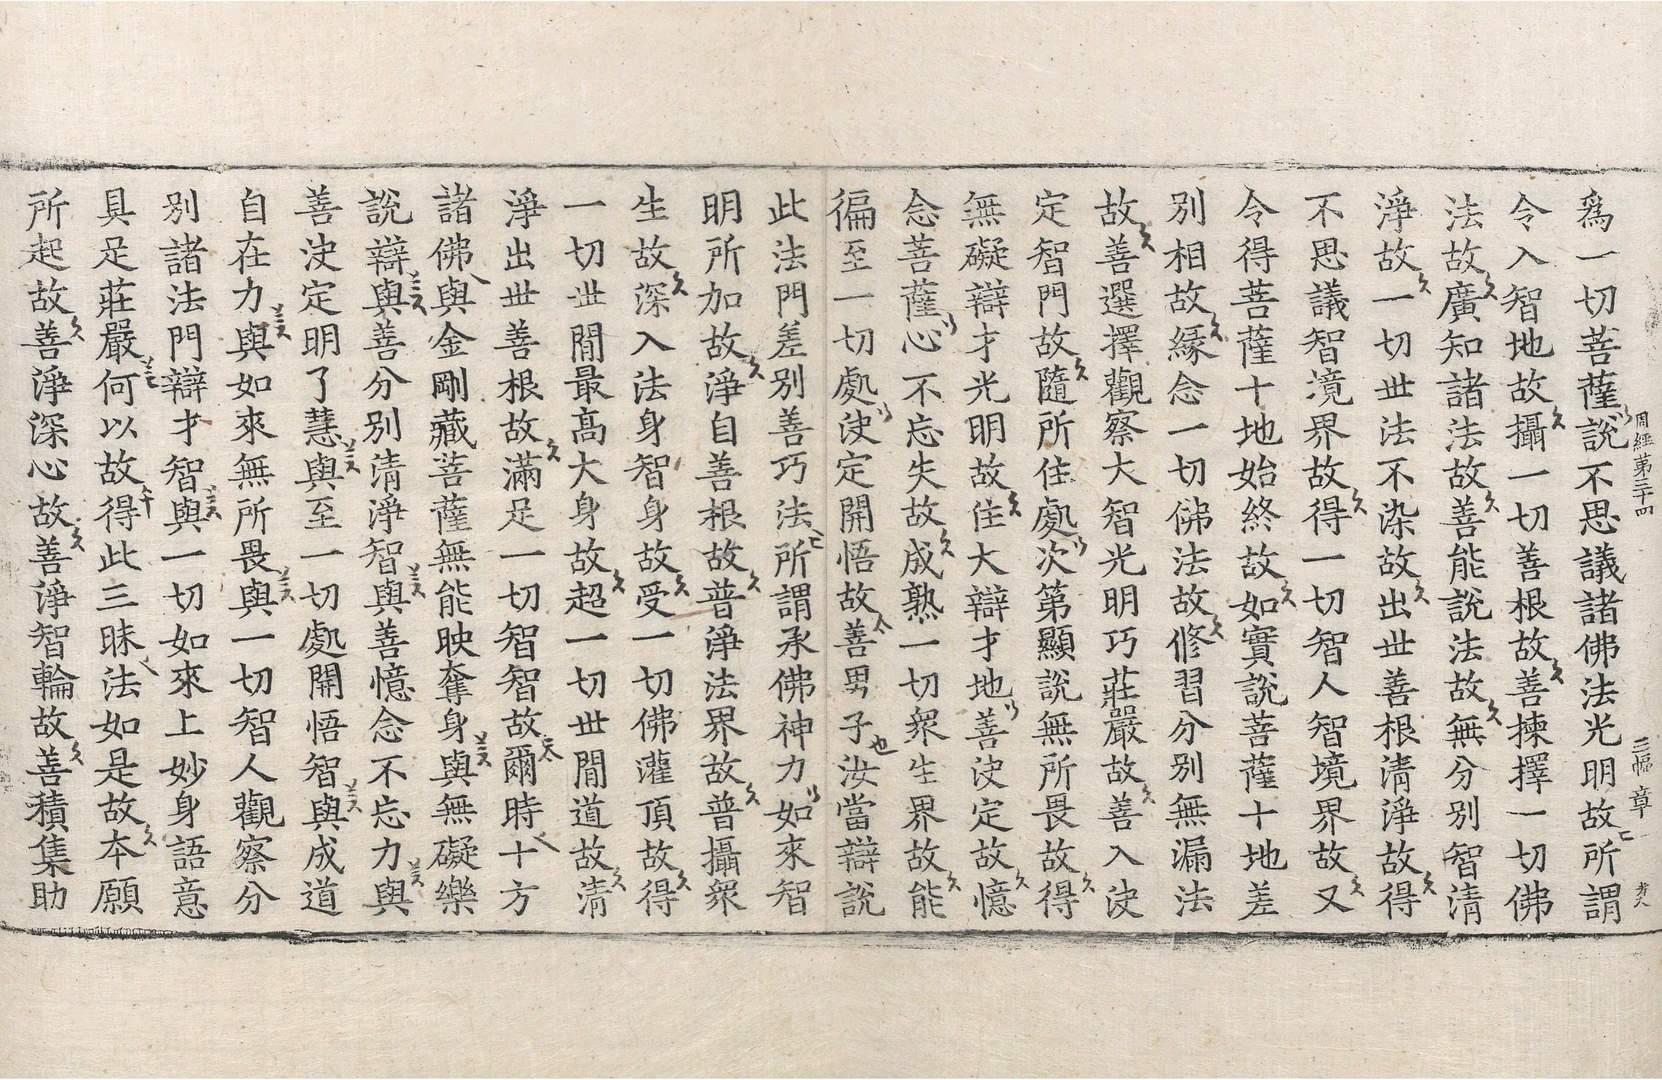 周經第三十四 三幅 章
爲一切菩薩說不思議諸佛法光明故所謂
令入智地故攝一切善根故善揀擇一切佛
法故廣知諸法故善能說法故無分別智清
淨故一切世法不染故出世善根清淨故得
不思議智境界故得一切智人智境界故又
令得菩薩十地始終故如實說菩薩十地差
別相故緣念一切佛法故修習分別無漏法
故善選擇觀察大智光明巧莊嚴故善入決
定智門故隨所住處次第顯說無所畏故得
無礙辯才光明故住大辯才地善決定故憶
念菩薩心不忘失故成熟一切衆生界故能
徧至一切處決定開悟故善男子汝當辯說
此法門差別善巧法所謂承佛神力如來智
明所加故淨自善根故普淨法界故普攝衆
生故深入法身智身故受一切佛灌頂故得
一切世間最高大身故超一切世間道故清
淨出世善根故滿足一切智智故爾時十方
諸佛與金剛藏菩薩無能映奪身與無礙樂
說辯與善分別清淨智與善憶念不忘力與
善決定明了慧與至一切處開悟智與成道
自在力與如來無所畏與一切智人觀察分
別諸法門辯才智與一切如來上妙身語意
具足莊嚴何以故得此三昧法如是故本願
所起故善淨深心故善淨智輪故善積集助